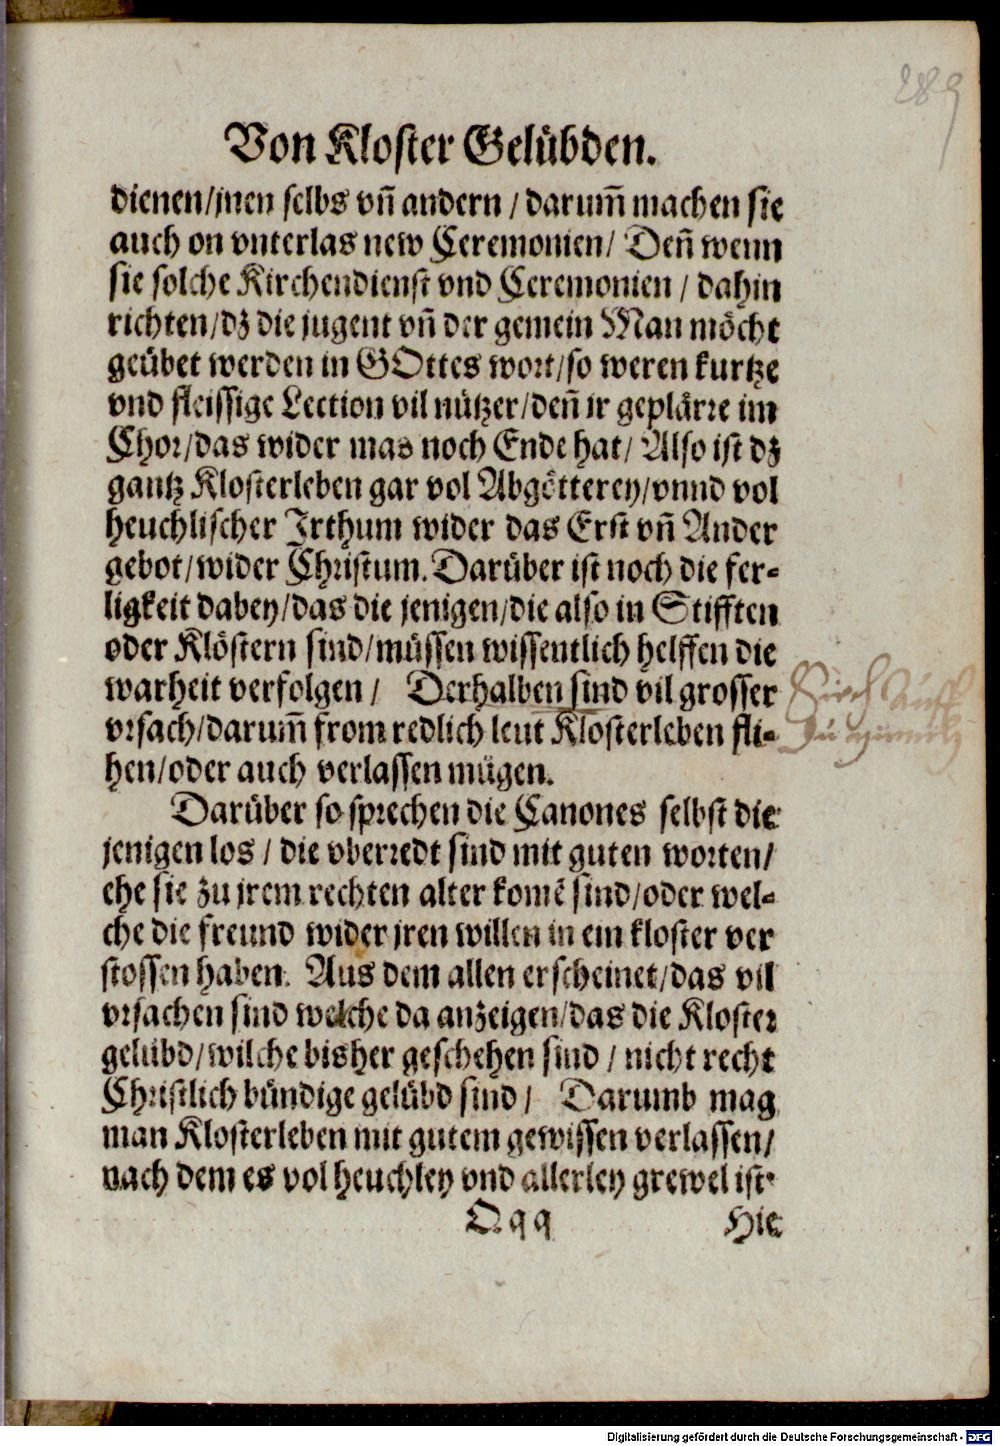 289
Von Kloster Gelübden.
dienen/jnen selbs vñ andern / darum̃ machen sie
auch on vnterlas new Ceremonien/ Deñ wenn
sie solche Kirchendienst vnd Ceremonien / dahin
richten/dz die jugent vñ der gemein Man möcht
geübet werden in GOttes wort/so weren kurtze
vnd fleissige Lection vil nützer/deñ ir geplärre im
Chor/das wider mas noch Ende hat/ Also ist dz
gantz Klosterleben gar vol Abgötterey/vnnd vol
heuchlischer Irthum wider das Erst vñ Ander
gebot/wider Christum. Darüber ist noch die fer-
ligkeit dabey/das die jenigen/die also in Stifften
oder Klöstern sind/müssen wissentlich helffen die
warheit verfolgen / Derhalben sind vil grosser
vrsach/darum̃ from redlich leut Klosterleben fli-
hen/oder auch verlassen mügen.
Darüber so sprechen die Canones selbst die
jenigen los / die vberredt sind mit guten worten/
ehe sie zu jrem rechten alter komẽ sind/oder wel-
che die freund wider jren willen in ein kloster ver
stossen haben. Aus dem allen erscheinet/das vil
vrsachen sind welche da anzeigen/das die Kloster
gelübd/wilche bisher geschehen sind / nicht recht
Christlich bündige gelübd sind / Darumb mag
man Klosterleben mit gutem gewissen verlassen/
nach dem es vol heuchley vnd allerley grewel ist.
Qqq Hie
Digitalisierung gefördert durch die Deutsche Forschungsgemeinschaft - DFG